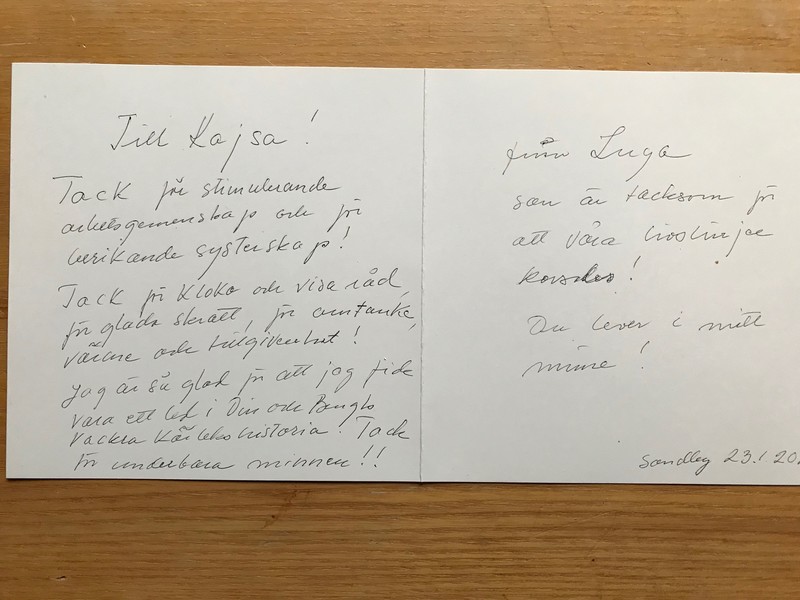 Till Kajsa!
Tack för stimulerande
arbetsgemenskap och för
berikande systerskap!
Tack för kloka och visa råd,
för glada skratt, för omtanke,
värme och tillgivenhet!
Jag är så glad för att jag fick
vara ett led i Din och Bengts
vackra kärlekshistoria. Tack
för underbara minnen!!
från Inga
som är tacksam för
att våra livslinjer
korsades!
Du lever i mitt
minne!
Sandby 23.1 20